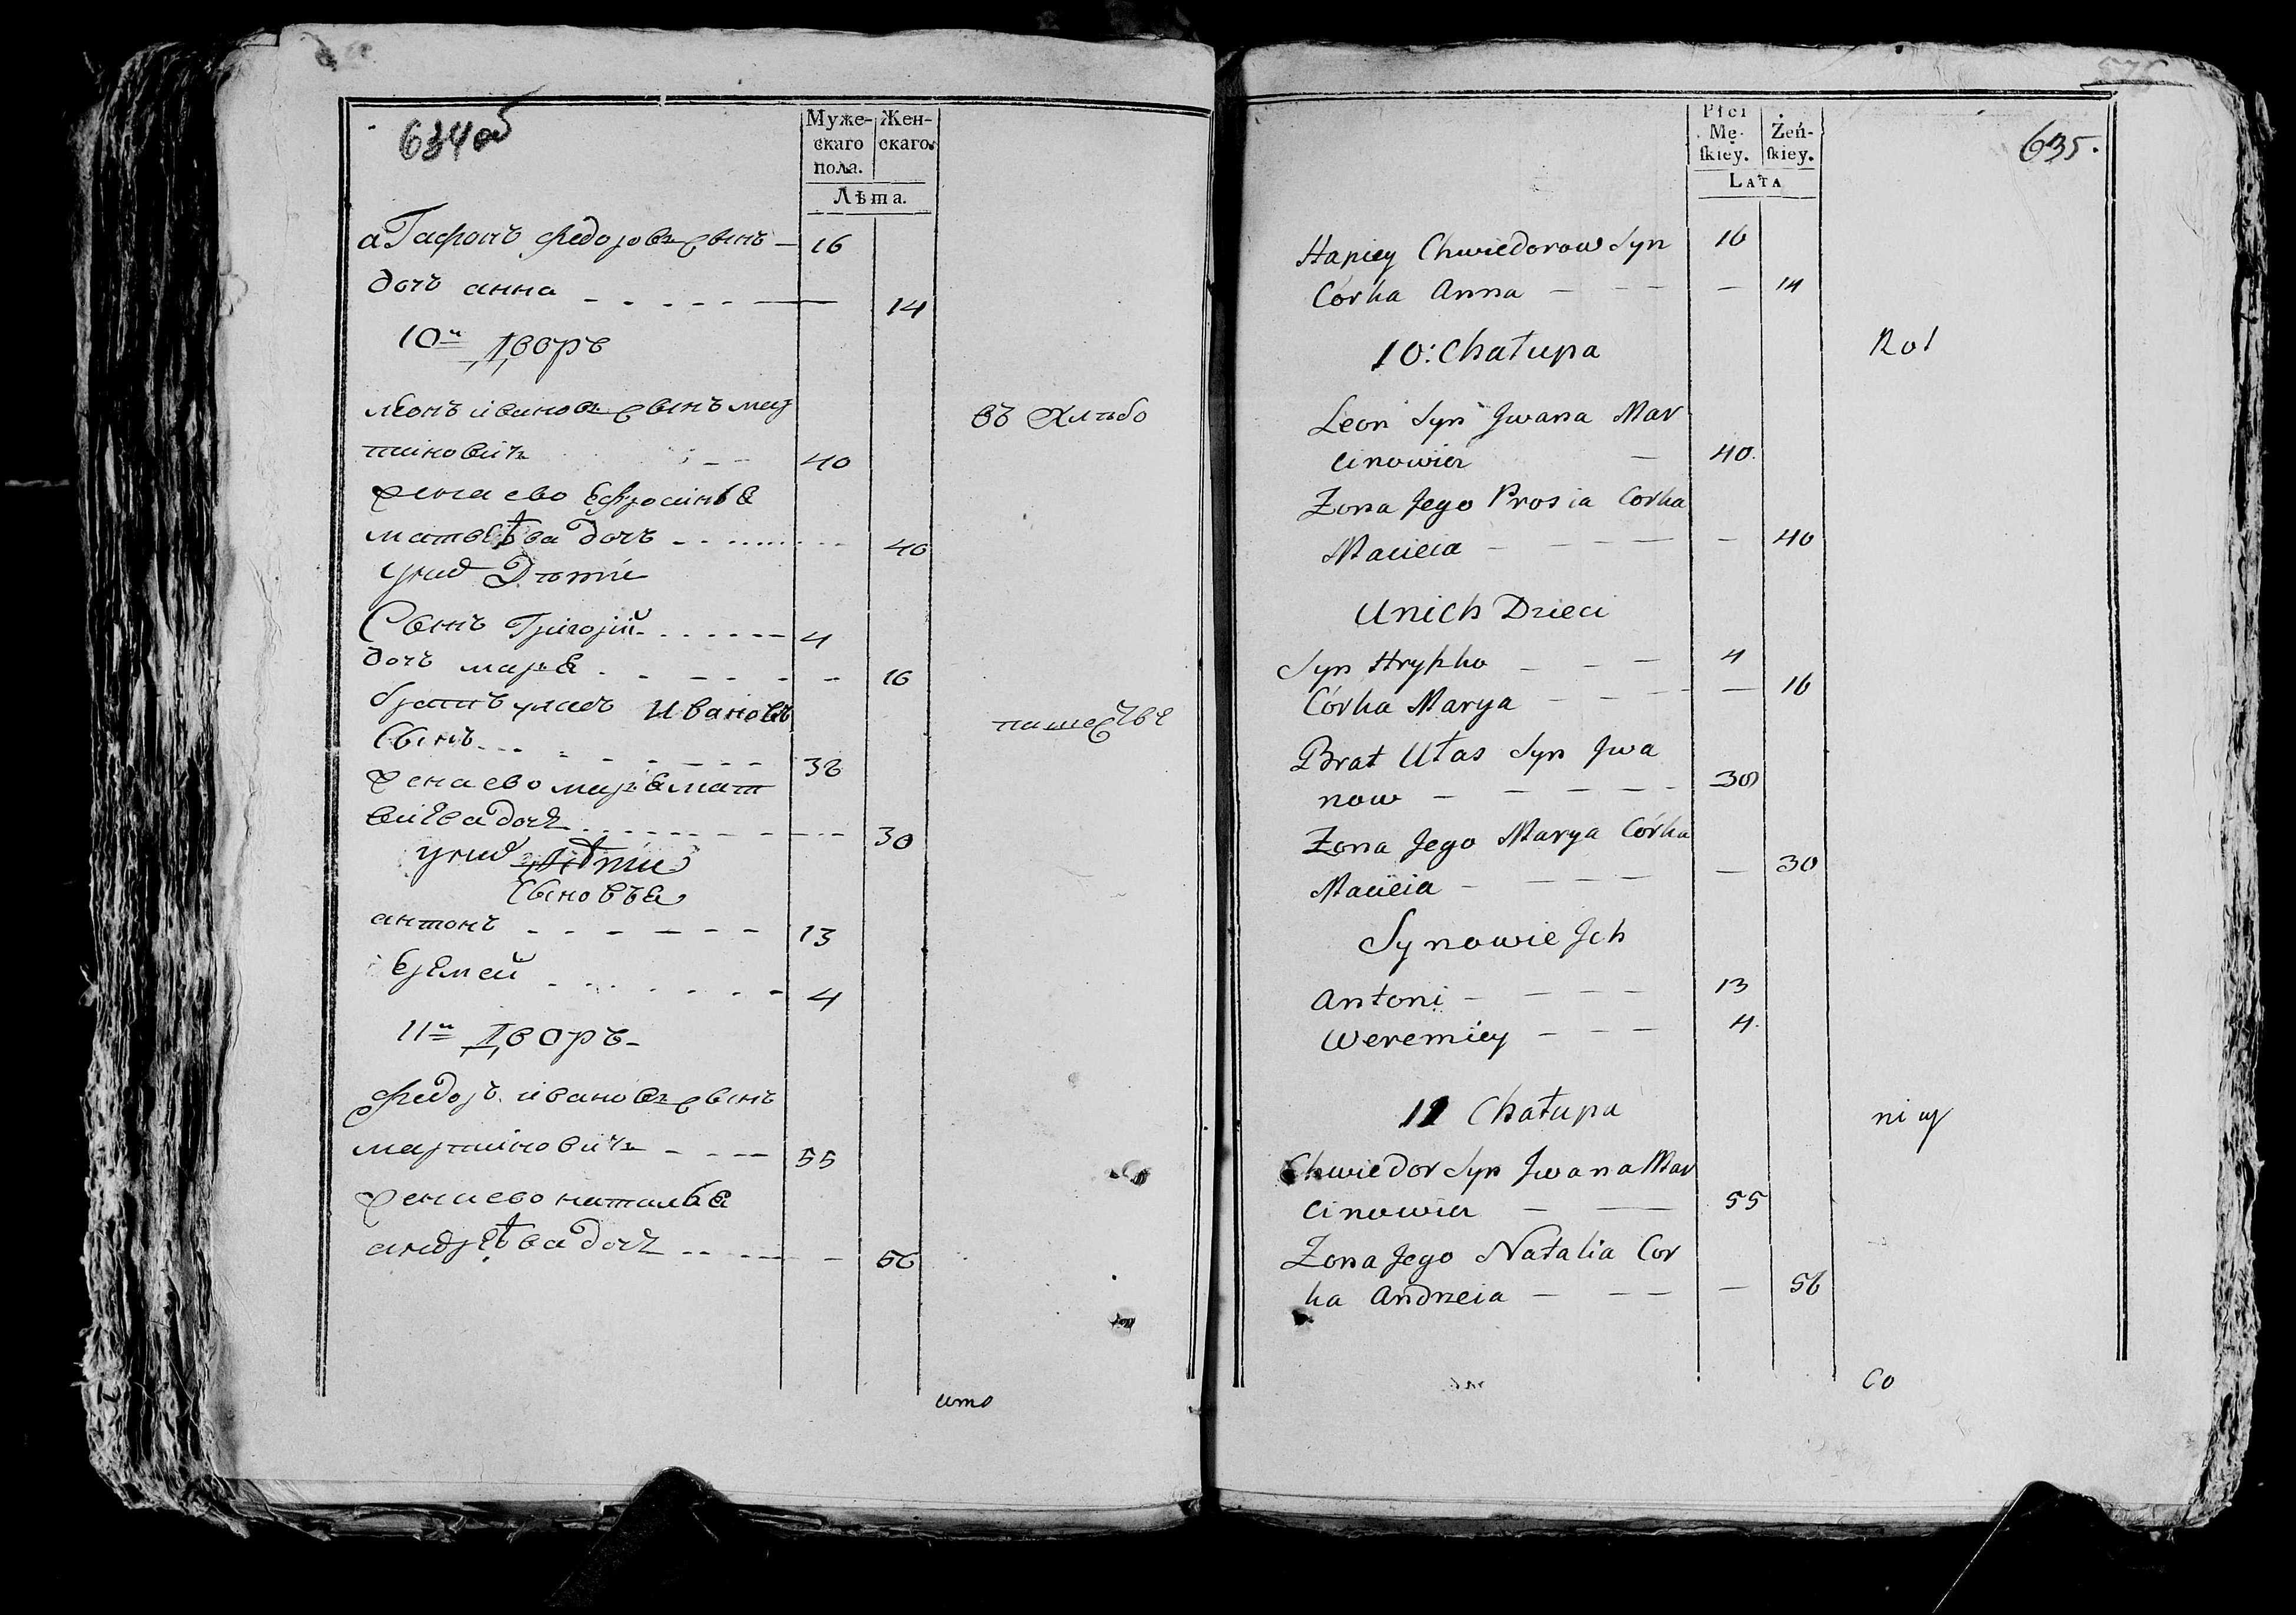 634 об
Муже- Жен-
скаго скаго.
пола.
Лѣта.
агафонъ федоровъ сынъ — 16
дочъ анна - - - - - — 14
10й Дворъ
леонъ ивановъ сынъ мар
тиновичъ - - 40
жена ево
матвеѣва дочъ - - - - - 40
унихъ Дѣти
Сынъ Григорий - - - - - 4
дочъ маря - - - - - 16
братъ улас Ивановъ
Сынъ - - - - - -
жена ево маря мат
вичва дочъ - - - - - - 30
унихъ дѣти
Сыновья
антонъ - - - - - - 13
Еремей - - - - - - 4
11й Дворъ -
федоръ ивановъ сынъ
мартиновичъ - - - - 55
жена ево наталья
андреѣва дочъ - - - - - 56
въ Хлѣбо
пашестве
што
Płci
Mę-
ſkiey. Żeń-
ſkiey.
LATA
635.
Hapiey Chwiedorow Syn 16
Córka Anna — — — — 14
10: Chałupa
Rol
Leon Syn Jwana Mar
cinowicz — 40.
Zona Jego Prosia Corka
Macieia — — — — — 40
Unich Dzieci
Syn Hryszko — — — 4
Córka Marya — — — — 16
Brat Ułas Syn Jwa
now — — — — —
Zona Jego Marya Córka
Macieia — — — — — 30
Synowie Jch
Antoni — — — — 13
Weremiey — — — 4.
11 Chałupa
niey
Chwiedor Syn Jwana Mar
cinowicz — — 55
Zona Jego Natalia Cor
ka Andrzeia — — — — 56
Co